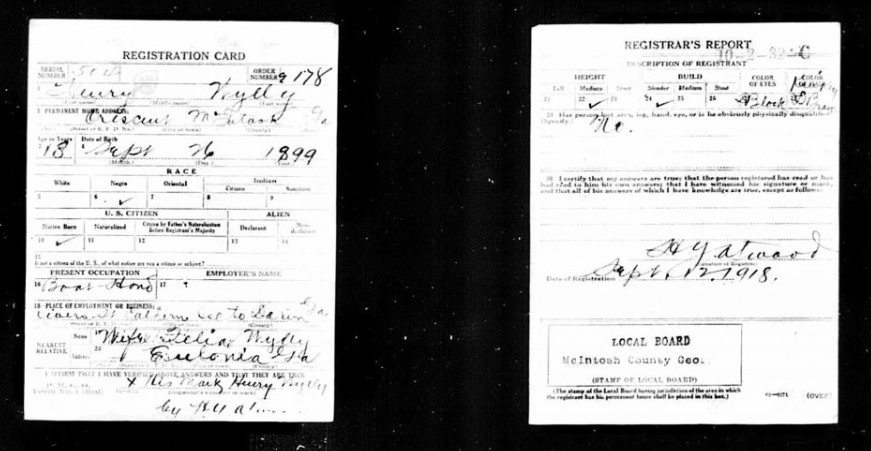 REGISTRATION CARD
SERIAL NUMBER
ORDER NUMBER 9178
1 Henry Wylly
2 PERMANENT HOME ADDRESS:
Crescent McIntosh Ga
Age in Years
Date of Birth
3 18 4 Sept 26 1899
RACE
White Negro Oriental Indian
Citizen Noncitizen
5 6 ✓ 7 8 9
U. S. CITIZEN ALIEN
Native Born Naturalized Citizen by Father's Naturalization Before Registrant's Majority Declarant Non-declarant
10 ✓ 11 12 13 14
15
If not a citizen of the U. S., of what nation are you a citizen or subject?
PRESENT OCCUPATION EMPLOYER'S NAME
16 Boat Hand 17
18 PLACE OF EMPLOYMENT OR BUSINESS:
to Darien Ga
NEAREST RELATIVE
Name Wife Wylly
Address 20 Eulonia Ga
I AFFIRM THAT I HAVE VERIFIED ABOVE ANSWERS AND THAT THEY ARE TRUE
P. M. G. O.
Form No. 1 (Red)
x His Mark Henry Wylly
by H
REGISTRAR'S REPORT
DESCRIPTION OF REGISTRANT
HEIGHT BUILD COLOR OF EYES COLOR
Tall Medium Short Slender Medium Stout
21 22 ✓ 23 24 ✓ 25 26 27 Black 28
29 Has person lost arm, leg, hand, eye, or is he obviously physically disqualified?
(Specify.) No.
30 I certify that my answers are true; that the person registered has read or has
had read to him his own answers; that I have witnessed his signature or mark,
and that all of his answers of which I have knowledge are true, except as follows:
H Y atwood
(Signature of Registrar)
Date of Registration Sept. 12. 1918.
LOCAL BOARD
McIntosh County Geor.
(STAMP OF LOCAL BOARD)
(The stamp of the Local Board having jurisdiction of the area in which
the registrant has his permanent home shall be placed in this box.)
(OVER)